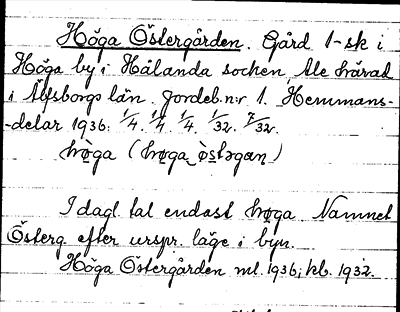 Höga Östergården. Gård 1-sk i
Höga by i Hålanda socken, Ale härad
i Älfsborgs län. Jordeb.n:r 1. Hemmans-
-delar 1936: 1/4. 1/4. 1/4. 1/32. 7/32.
høga (høga østəgaɳ)
I dagl. tal endast høga. Namnet
Österg. efter urspr. läge i byn.
Höga Östergården ml. 1936; kb. 1932.